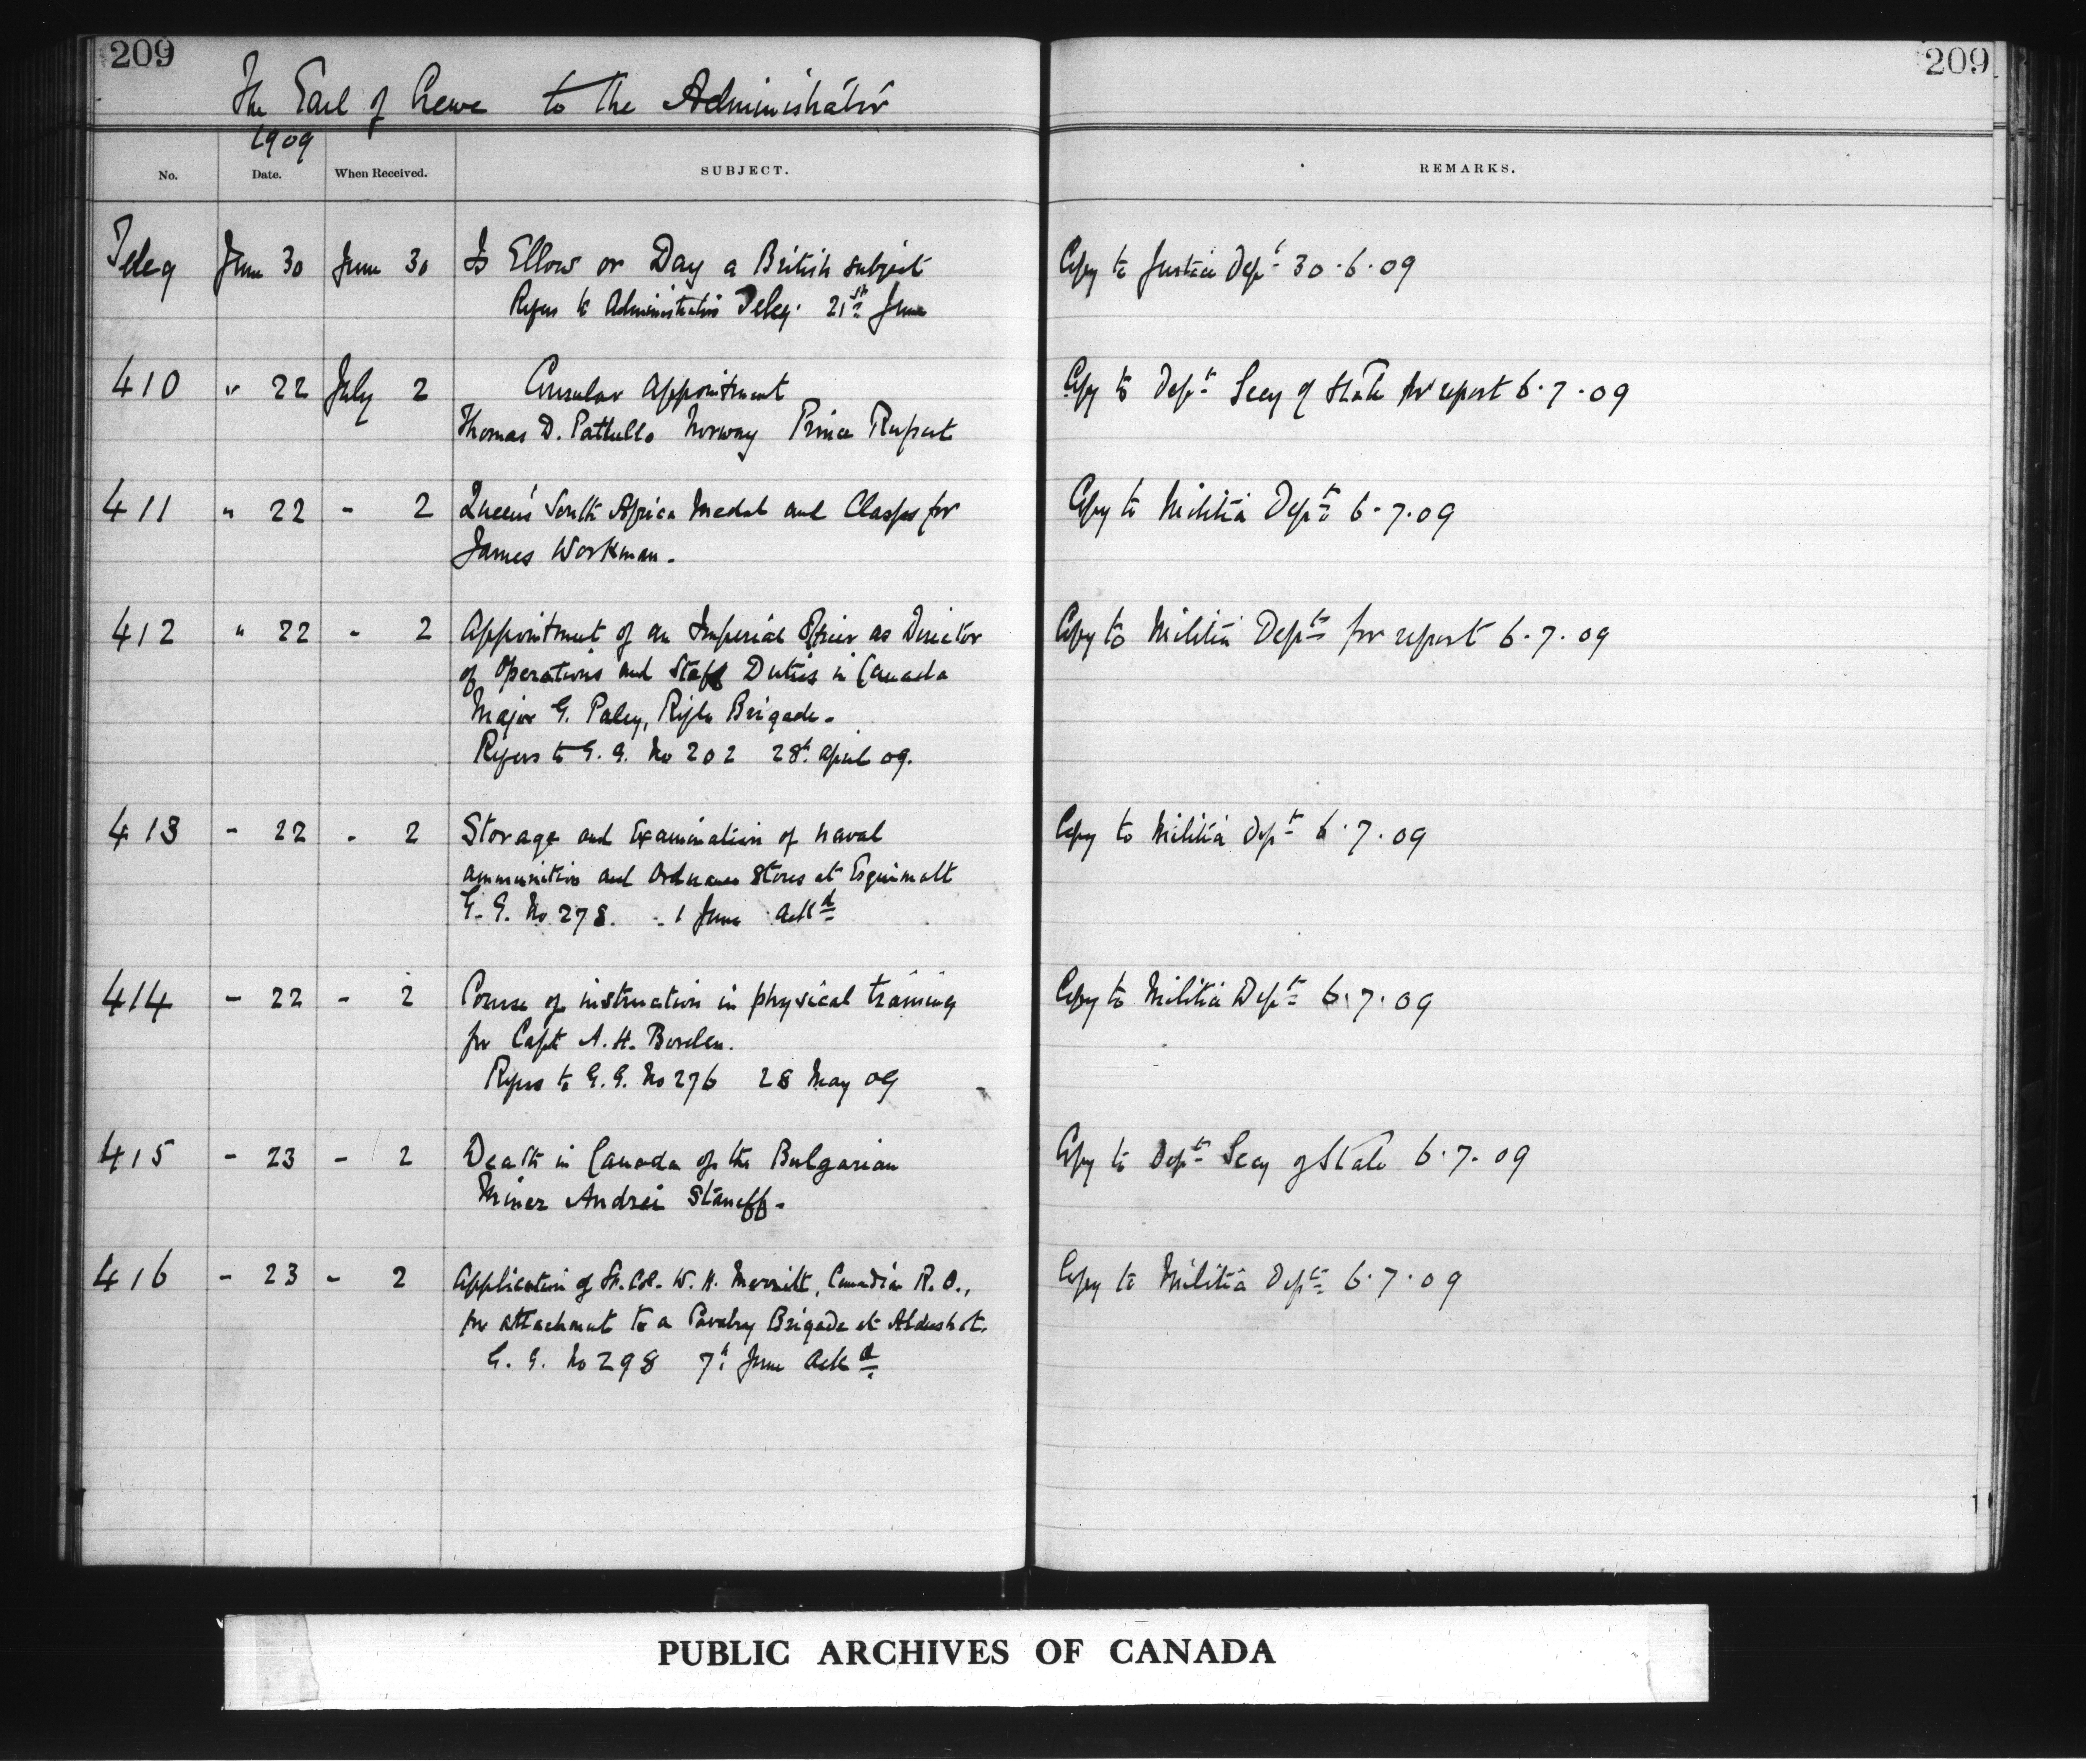 209
209
The Earl of Crewe to the Administrator
1909
No. Date. When Received. SUBJECT. REMARKS.
Teleg June 30 June 30 Is Ellow or Day a British subject Copy to Justice Dept 30.6.09
Refers to Administrator's Teleg. 21st June
410 " 22 July 2 Consular Appointment Copy to Dept Secy of State for report 6.7.09
Thomas D. Pattullo Norway Prince Rupert
411 " 22 - 2 Queen's South Africa Medal and Clasps for Copy to Militia Dept 6.7.09
James Workman.
412 " 22 - 2 Appointment of an Imperial Officer as Director Copy to Militia Dept for report 6.7.09
of Operations and Staff Duties in Canada
Major G. Paley, Rifle Brigade.
Refers to G.G. No 202 28th April 09.
413 - 22 - 2 Storage and Examination of naval Copy to Militia Dept 6.7.09
ammunition and Ordnance Stores at Esquimalt
G.G. No 278. - 1 June Ackd
414 - 22 - 2 Course of instruction in physical training Copy to Militia Dept 6.7.09
for Capt A.H. Borden.
Refers to G.G. No 276 28 May 09
415 - 23 - 2 Death in Canada of the Bulgarian Copy to Dept Secy of State 6.7.09
Miner Andrei Staneff.
416 - 23 - 2 Application of Lt. Col. W.H. Merritt, Canadian R.O., Copy to Militia Dept 6.7.09
for attachment to a Cavalry Brigade at Aldershot.
G.G. No 298 7th June Ackd
PUBLIC ARCHIVES OF CANADA